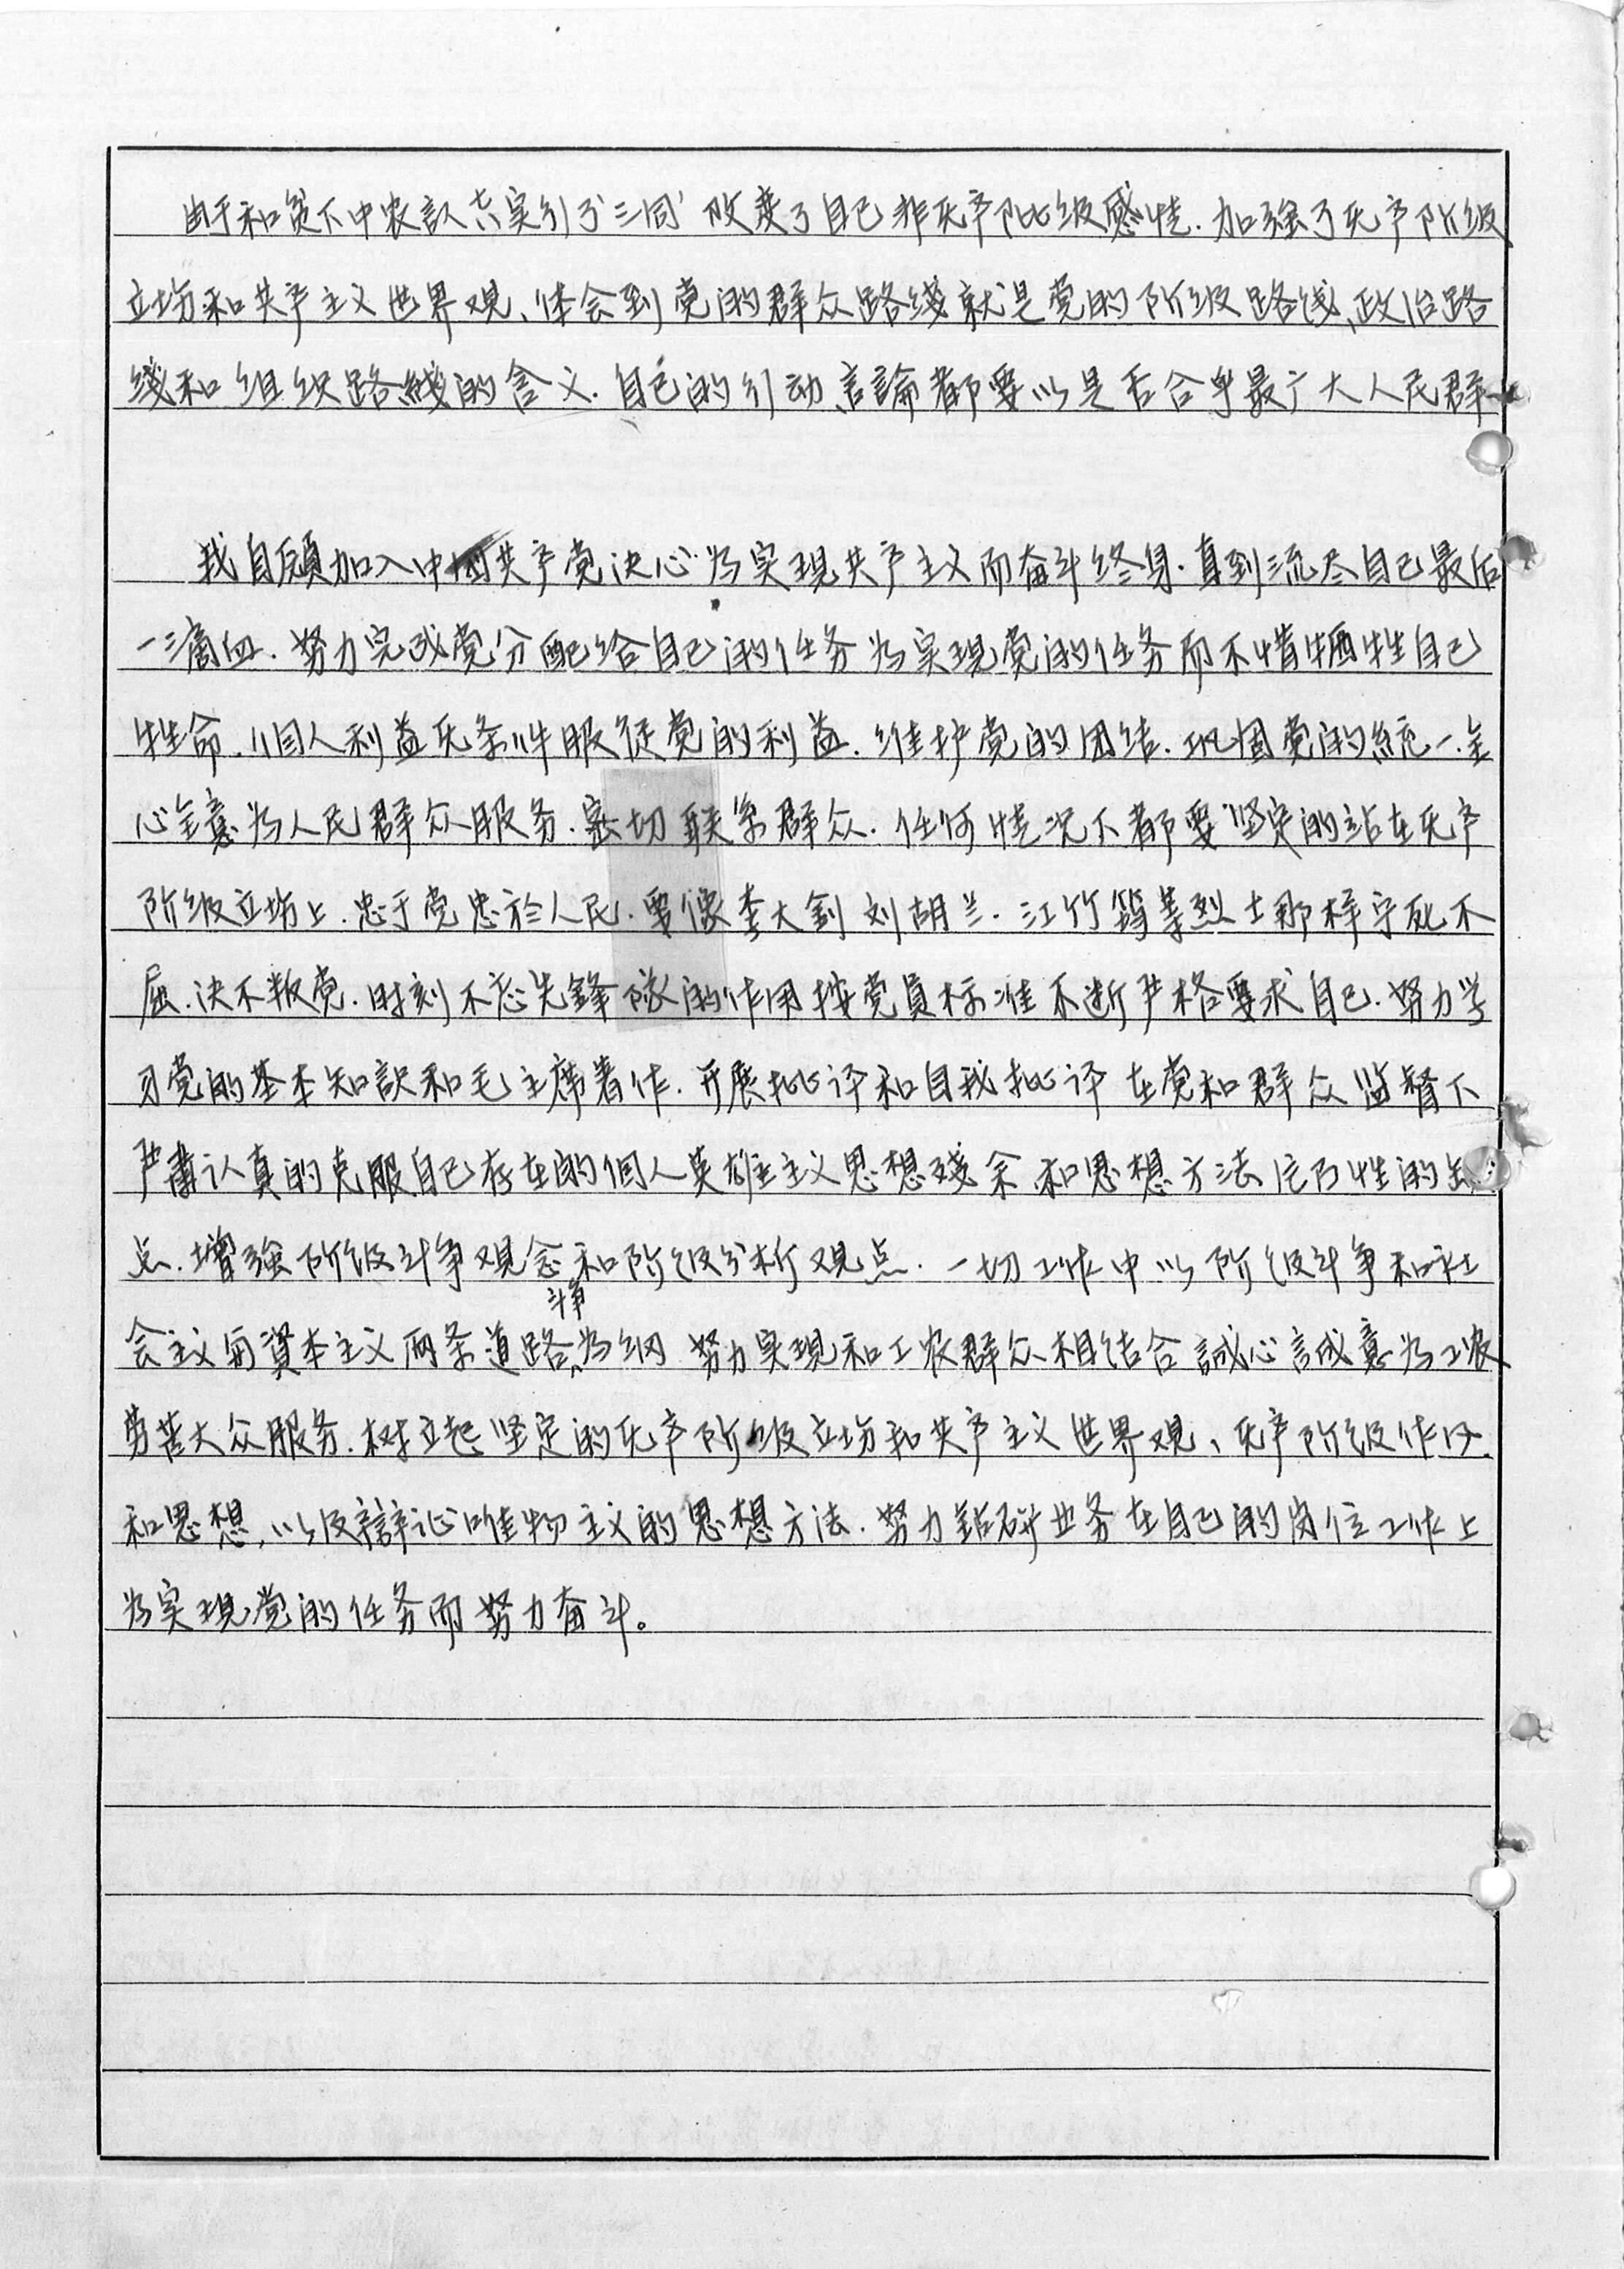 由于和贫下中农認真实行了“三同”改变了自己非无产阶级感情.加强了无产阶级
立场和共产主义世界观、体会到党的群众路线就是党的阶级路线、政治路
线和组织路綫的含义.自己的行动、言論都要以是否合乎最广大人民群
我自願加入中国共产党决心为实现共产主义而奋斗终身.直到流尽自己最后
一滴血.努力完成党分配给自己的任务为实现党的任务而不惜牺牲自己
生命.個人利益无条件服從党的利益.维护党的团结.巩固党的統一.全
心全意为人民群众服务.密切联系群众.任何情况下都要坚定的站在无产
阶级立场上.忠于党忠於人民.要像李大釗刘胡兰.江竹筠等烈士那样宁死不
屈.决不叛党.时刻不忘先鋒隊的作用按党員标准不断严格要求自己.努力学
习党的基本知識和毛主席著作.开展批评和自我批评在党和群众监督下
严肅认真的克服自己存在的個人英雄主义思想残余和思想方法片面性的缺
点.增强阶级斗争观念和阶级分析观点.一切工作中以阶级斗争和社
会主义与資本主义两条道路斗争为纲 努力实現和工农群众相结合誠心誠意为工农
劳苦大众服务.树立起坚定的无产阶级立场和共产主义世界观、无产阶级作风
和思想,以及辯证唯物主义的思想方法.努力鉆研业务在自己的岗位工作上
为实現党的任务而努力奋斗。